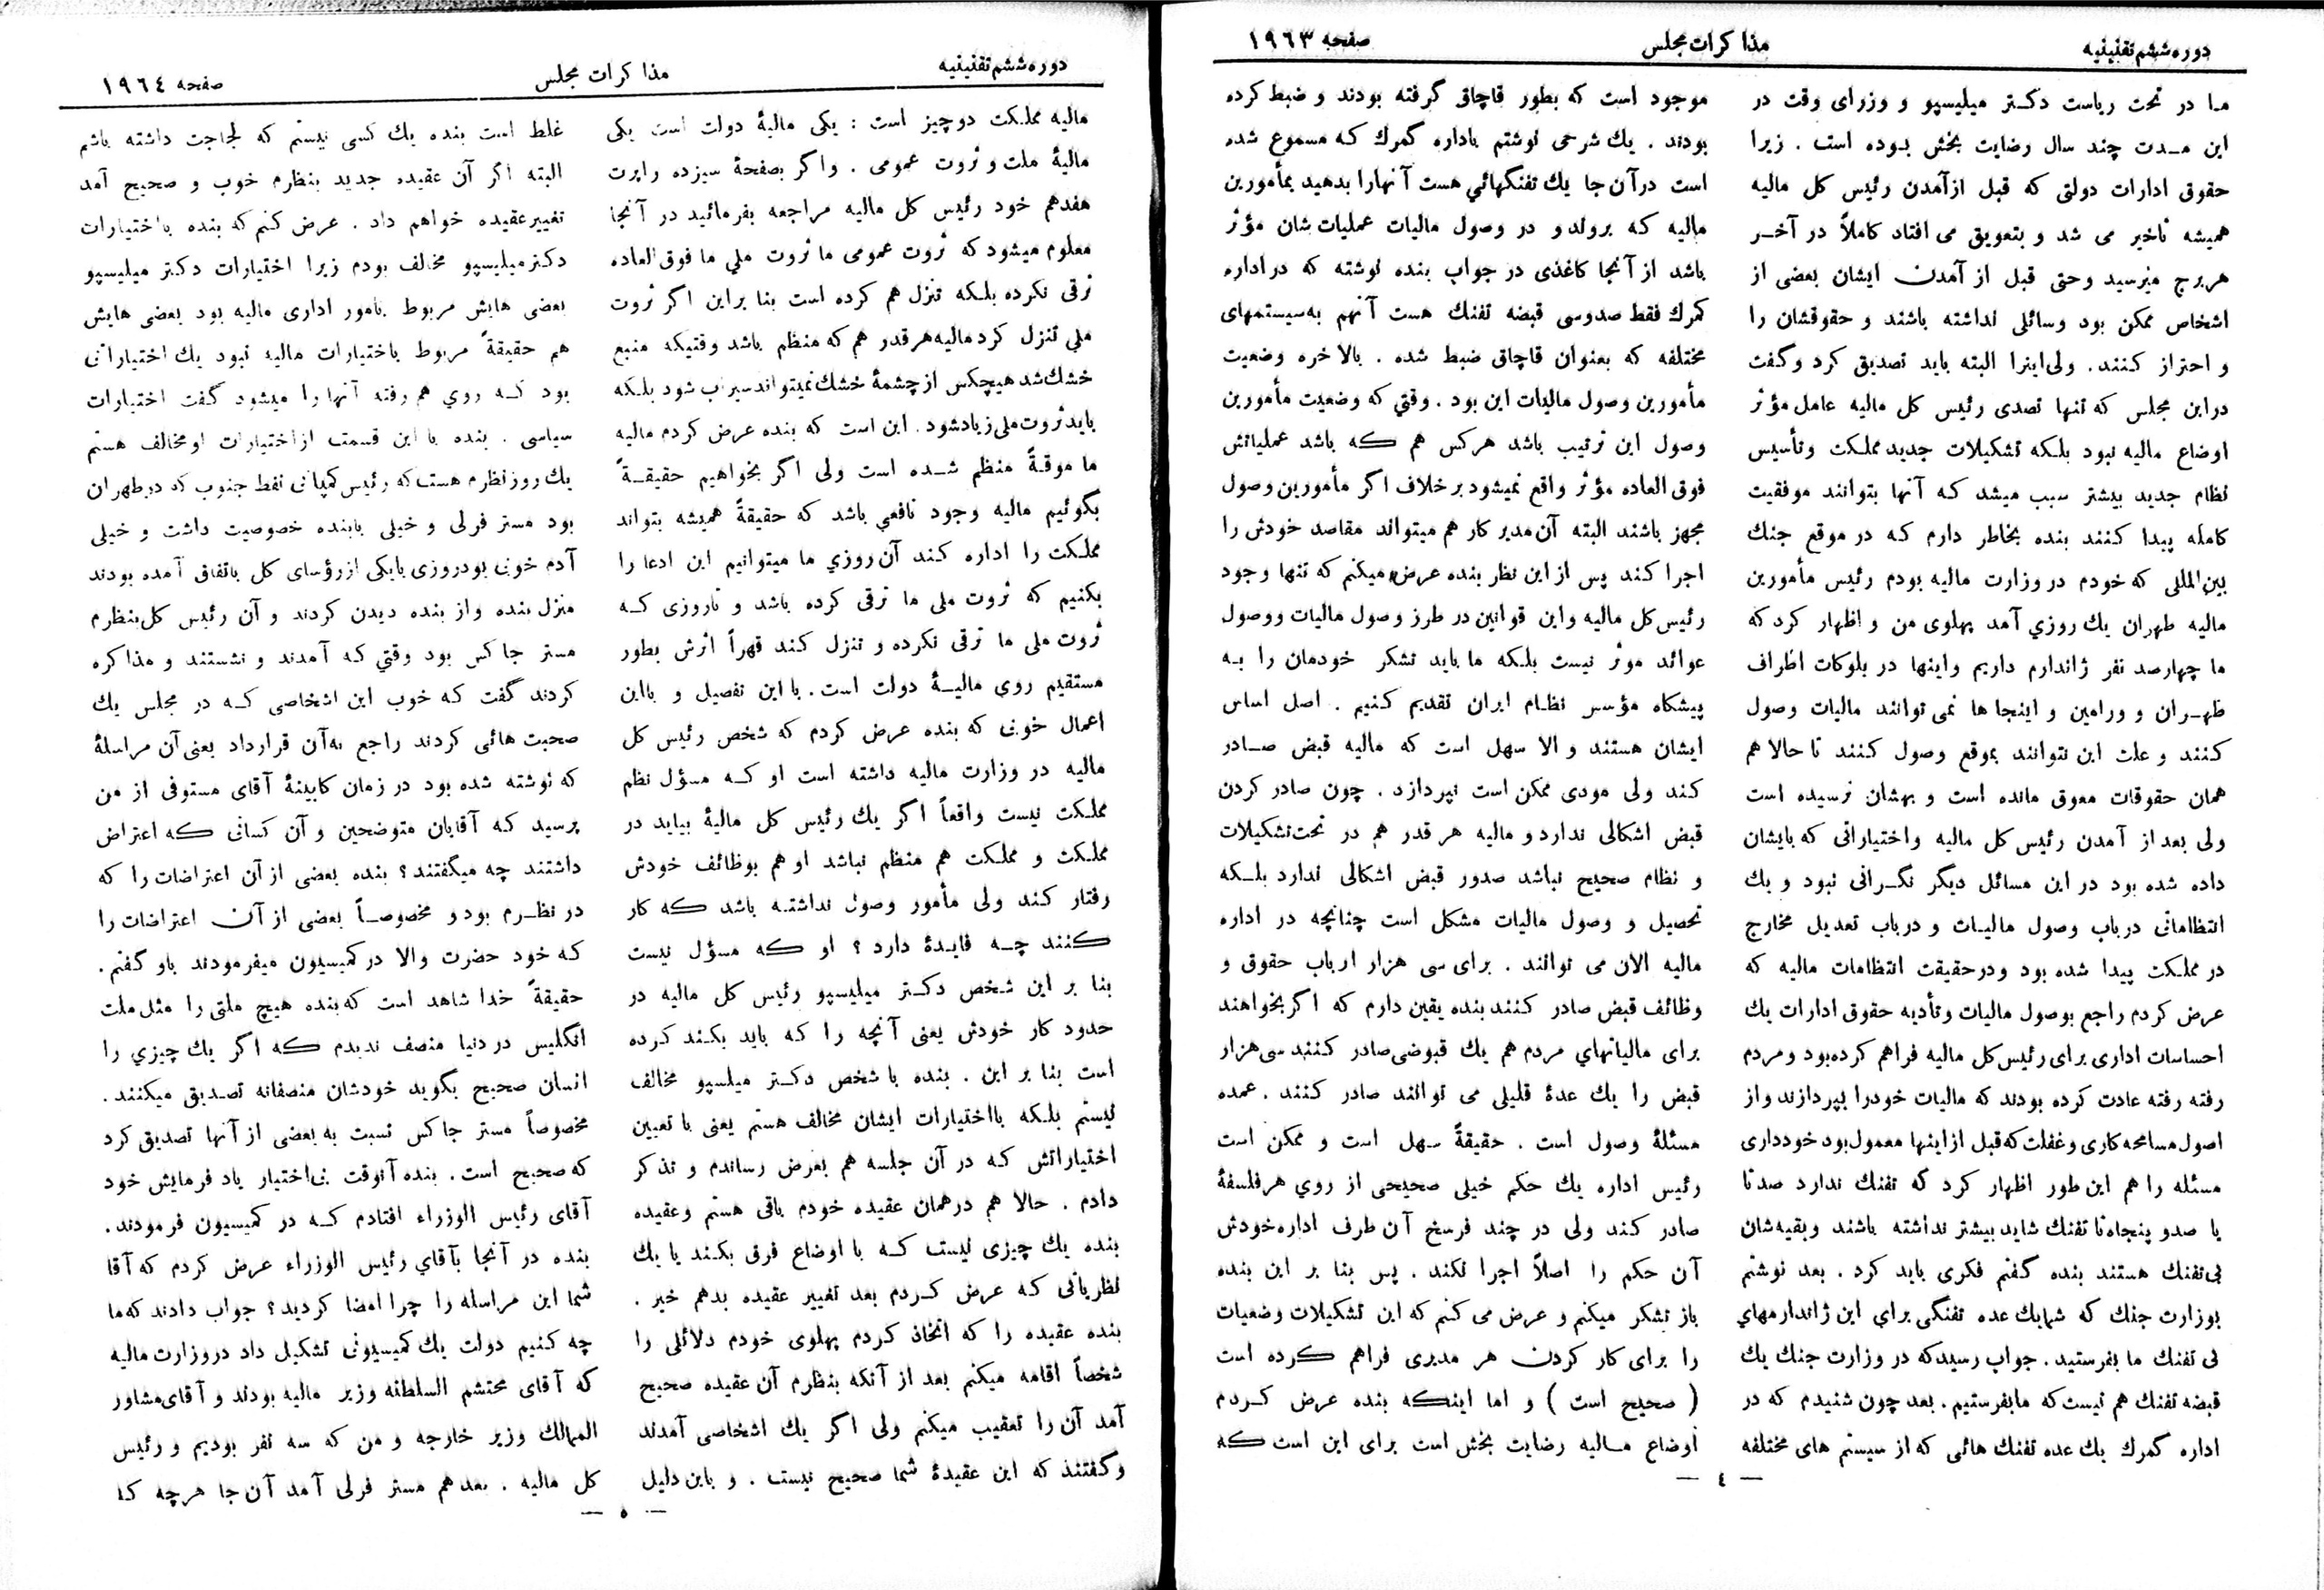 دوره ششم تقنینیه
مذاکرات مجلس
صفحه ۱۹٦۳
ما در تحت ریاست دکتر میلیسپو و وزرای وقت در
این مدت چند سال رضایت بخش بوده است . زیرا
حقوق ادارات دولتی که قبل از آمدن رئیس کل مالیه
همیشه تأخیر می شد و بتعویق می افتاد کاملاً در آخر
هر برج میرسید وحتی قبل از آمدن ایشان بعضی از
اشخاص ممکن بود وسائلی نداشته باشند و حقوقشان را
و احتراز کنند . ولی اینرا البته باید تصدیق کرد وگفت
در این مجلس که تنها تصدی رئیس کل مالیه عامل مؤثر
اوضاع مالیه نبود بلکه تشکیلات جدید مملکت وتأسیس
نظام جدید بیشتر سبب میشد که آنها بتوانند موفقیت
کامله پیدا کنند بنده بخاطر دارم که در موقع جنك
بین المللی که خودم در وزارت مالیه بودم رئیس مأمورین
مالیه طهران یك روزي آمد پهلوی من و اظهار کرد که
ما چهارصد نفر ژاندارم داریم واینها در بلوکات اطراف
طهران و ورامین و اینجا ها نمی توانند مالیات وصول
کنند و علت این نتوانند بموقع وصول کنند تا حالا هم
همان حقوقات معوق مانده است و بهشان نرسیده است
ولی بعد از آمدن رئیس کل مالیه واختیاراتی که بایشان
داده شده بود در این مسائل دیگر نگرانی نبود و یك
انتظاماتی در باب وصول مالیات و درباب تعدیل مخارج
در مملکت پیدا شده بود ودر حقیقت انتظامات مالیه که
عرض کردم راجع بوصول مالیات وتأدیه حقوق ادارات یك
احساسات اداری برای رئیس کل مالیه فراهم کرده بود ومردم
رفته رفته عادت کرده بودند که مالیات خودرا بپردازند واز
اصول مسامحه کاری وغفلت که قبل از اینها معمول بود خودداری
مسئله را هم این طور اظهار کرد که تفنك ندارد صد تا
یا صدو پنجاه تا تفنك شاید بیشتر نداشته باشند وبقیه شان
بی تفنك هستند بنده گفتم فکری باید کرد . بعد نوشتم
بوزارت جنك که شما یك عده تفنگی برای این ژاندارمهای
بی تفنك ما بفرستید . جواب رسید که در وزارت جنك یك
قبضه تفنك هم نیست که ما بفرستیم . بعد چون شنیدم که در
اداره گمرك یك عده تفنك هائی که از سیستم های مختلفه
موجود است که بطور قاچاق گرفته بودند و ضبط کرده
بودند . یك شرحی نوشتم باداره گمرك که مسموع شده
است در آن جا یك تفنگهائي هست آنهارا بدهید بمأمورین
مالیه که بروند و در وصول مالیات عملیات شان مؤثر
باشد از آنجا کاغذی در جواب بنده نوشته که در اداره
گمرك فقط صدوسی قبضه تفنك هست آنهم به سیستمهای
مختلفه که بعنوان قاچاق ضبط شده . بالاخره وضعیت
مأمورین وصول مالیات این بود . وقتي که وضعیت مأمورین
وصول این ترتیب باشد هرکس هم که باشد عملیاتش
فوق العاده مؤثر واقع نمیشود برخلاف اگر مأمورین وصول
مجهز باشند البته آن مدیر کار هم میتواند مقاصد خودش را
اجرا کند پس از این نظر بنده عرض میکنم که تنها وجود
رئیس کل مالیه واین قوانین در طرز وصول مالیات ووصول
عوائد موثر نیست بلکه ما باید تشکر خودمان را به
پیشگاه مؤسس نظام ایران تقدیم کنیم . اصل اساس
ایشان هستند و الا سهل است که مالیه قبض صادر
کند ولی مودی ممکن است نپردازد . چون صادر کردن
قبض اشکالی ندارد و مالیه هر قدر هم در تحت تشکیلات
و نظام صحیح نباشد صدور قبض اشکالی ندارد بلکه
تحصیل و وصول مالیات مشکل است چنانچه در اداره
مالیه الان می توانند . برای سی هزار ارباب حقوق و
وظائف قبض صادر کنند بنده یقین دارم که اگر بخواهند
برای مالیاتهای مردم هم یك قبوضی صادر کنند سی هزار
قبض را یك عدۀ قلیلی می توانند صادر کنند . عمده
مسئلۀ وصول است . حقیقةً سهل است و ممکن است
رئیس اداره یك حکم خیلی صحیحی از روي هر فلسفۀ
صادر کند ولی در چند فرسخ آن طرف اداره خودش
آن حکم را اصلاً اجرا نکند . پس بنا بر این بنده
باز تشکر میکنم و عرض می کنم که این تشکیلات وضعیات
را برای کار کردن هر مدیری فراهم کرده است
( صحیح است ) و اما اینکه بنده عرض کردم
اوضاع مالیه رضایت بخش است برای این است که
— ٤ —
دوره ششم تقنینیه
مذاکرات مجلس
صفحه ۱۹٦٤
مالیه مملکت دوچیز است : یکی مالیۀ دولت است یکی
مالیۀ ملت و ثروت عمومی . واگر بصفحۀ سیزده راپرت
هفدهم خود رئیس کل مالیه مراجعه بفرمائید در آنجا
معلوم میشود که ثروت عمومی ما ثروت ملي ما فوق العاده
ترقی نکرده بلکه تنزل هم کرده است بنا براین اگر ثروت
ملي تنزل کرد مالیه هرقدر هم که منظم باشد وقتیکه منبع
خشك شد هیچکس از چشمۀ خشك نمیتواند سیراب شود بلکه
باید ثروت ملی زیادشود . این است که بنده عرض کردم مالیه
ما موقةً منظم شده است ولی اگر بخواهیم حقیقةً
بگوئیم مالیه وجود نافعی باشد که حقیقةً همیشه بتواند
مملکت را اداره کند آن روزي ما میتوانیم این ادعا را
بکنیم که ثروت ملی ما ترقی کرده باشد و تاروزی که
ثروت ملی ما ترقی نکرده و تنزل کند قهراً اثرش بطور
مستقیم روی مالیۀ دولت است . با این تفصیل و بااین
اعمال خوبی که بنده عرض کردم که شخص رئیس کل
مالیه در وزارت مالیه داشته است او که مسؤل نظم
مملکت نیست واقعاً اگر یك رئیس کل مالیۀ بیاید در
مملکت و مملکت هم منظم نباشد او هم بوظائف خودش
رفتار کند ولی مأمور وصول نداشته باشد که کار
کنند چه فایدۀ دارد ؟ او که مسؤل نیست
بنا بر این شخص دکتر میلیسپو رئیس کل مالیه در
حدود کار خودش یعنی آنچه را که باید بکند کرده
است بنا بر این . بنده با شخص دکتر میلسپو مخالف
نیستم بلکه بااختیارات ایشان مخالف هستم یعنی با تعیین
اختیاراتش که در آن جلسه هم بعرض رساندم و تذکر
دادم . حالا هم درهمان عقیده خودم باقی هستم وعقیده
بنده یك چیزی نیست که با اوضاع فرق بکند یا یك
نظریاتی که عرض کردم بعد تغییر عقیده بدهم خیر .
بنده عقیده را که اتخاذ کردم پهلوی خودم دلائلی را
شخصاً اقامه میکنم بعد از آنکه بنظرم آن عقیده صحیح
آمد آن را تعقیب میکنم ولی اگر یك اشخاصی آمدند
وگفتند که این عقیدۀ شما صحیح نیست . و باین دلیل
غلط است بنده یك کسی نیستم که لجاجت داشته باشم
البته اگر آن عقیده جدید بنظرم خوب و صحیح آمد
تغییر عقیده خواهم داد . عرض کنم که بنده بااختیارات
دکتر میلیسپو مخالف بودم زیرا اختیارات دکتر میلیسپو
بعضی هایش مربوط بامور اداری مالیه بود بعضی هایش
هم حقیقةً مربوط باختیارات مالیه نبود یك اختیاراتی
بود که روي هم رفته آنها را میشود گفت اختیارات
سیاسی . بنده با این قسمت از اختیارات او مخالف هستم
یك روز نظرم هست که رئیس کمپانی نفط جنوب که در طهران
بود مستر فرلی و خیلی بابنده خصوصیت داشت و خیلی
آدم خوبی بود روزی بایکی از رؤسای کل باتفاق آمده بودند
منزل بنده واز بنده دیدن کردند و آن رئیس کل بنظرم
مستر جاکس بود وقتي که آمدند و نشستند و مذاکره
کردند گفت که خوب این اشخاصی که در مجلس یك
صحبت هائی کردند راجع به آن قرارداد یعنی آن مراسلۀ
که نوشته شده بود در زمان کابینۀ آقای مستوفی از من
پرسید که آقایان متوضحین و آن کسانی که اعتراض
داشتند چه میگفتند ؟ بنده بعضی از آن اعتراضات را که
در نظرم بود و مخصوصاً بعضی از آن اعتراضات را
که خود حضرت والا در کمیسیون میفرمودند باو گفتم .
حقیقةً خدا شاهد است که بنده هیچ ملتی را مثل ملت
انگلیس در دنیا منصف ندیدم که اگر یك چیزي را
انسان صحیح بگوید خودشان منصفانه تصدیق میکنند .
مخصوصاً مستر جاکس نسبت به بعضی از آنها تصدیق کرد
که صحیح است . بنده آنوقت بی اختیار یاد فرمایش خود
آقای رئیس الوزراء افتادم که در کمیسیون فرمودند .
بنده در آنجا بآقاي رئیس الوزراء عرض کردم که آقا
شما این مراسله را چرا امضا کردید ؟ جواب دادند که ما
چه کنیم دولت یك کمیسیونی تشکیل داد در وزارت مالیه
که آقای محتشم السلطنه وزیر مالیه بودند و آقای مشاور
الممالك وزیر خارجه و من که سه نفر بودیم و رئیس
کل مالیه . بعد هم مستر فرلی آمد آن جا هرچه که
— ٥ —